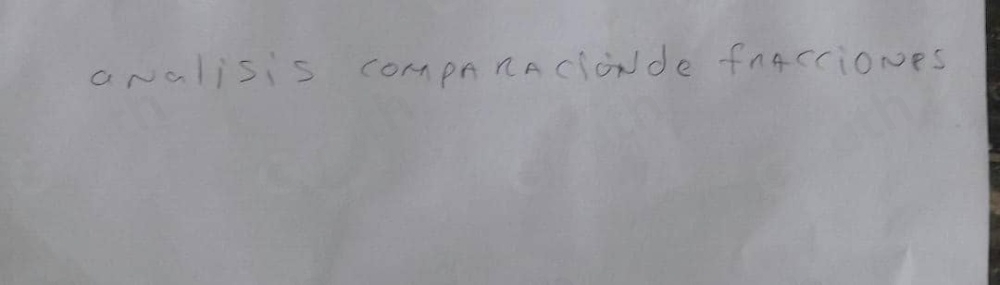 analisis comparaciónde fracciones